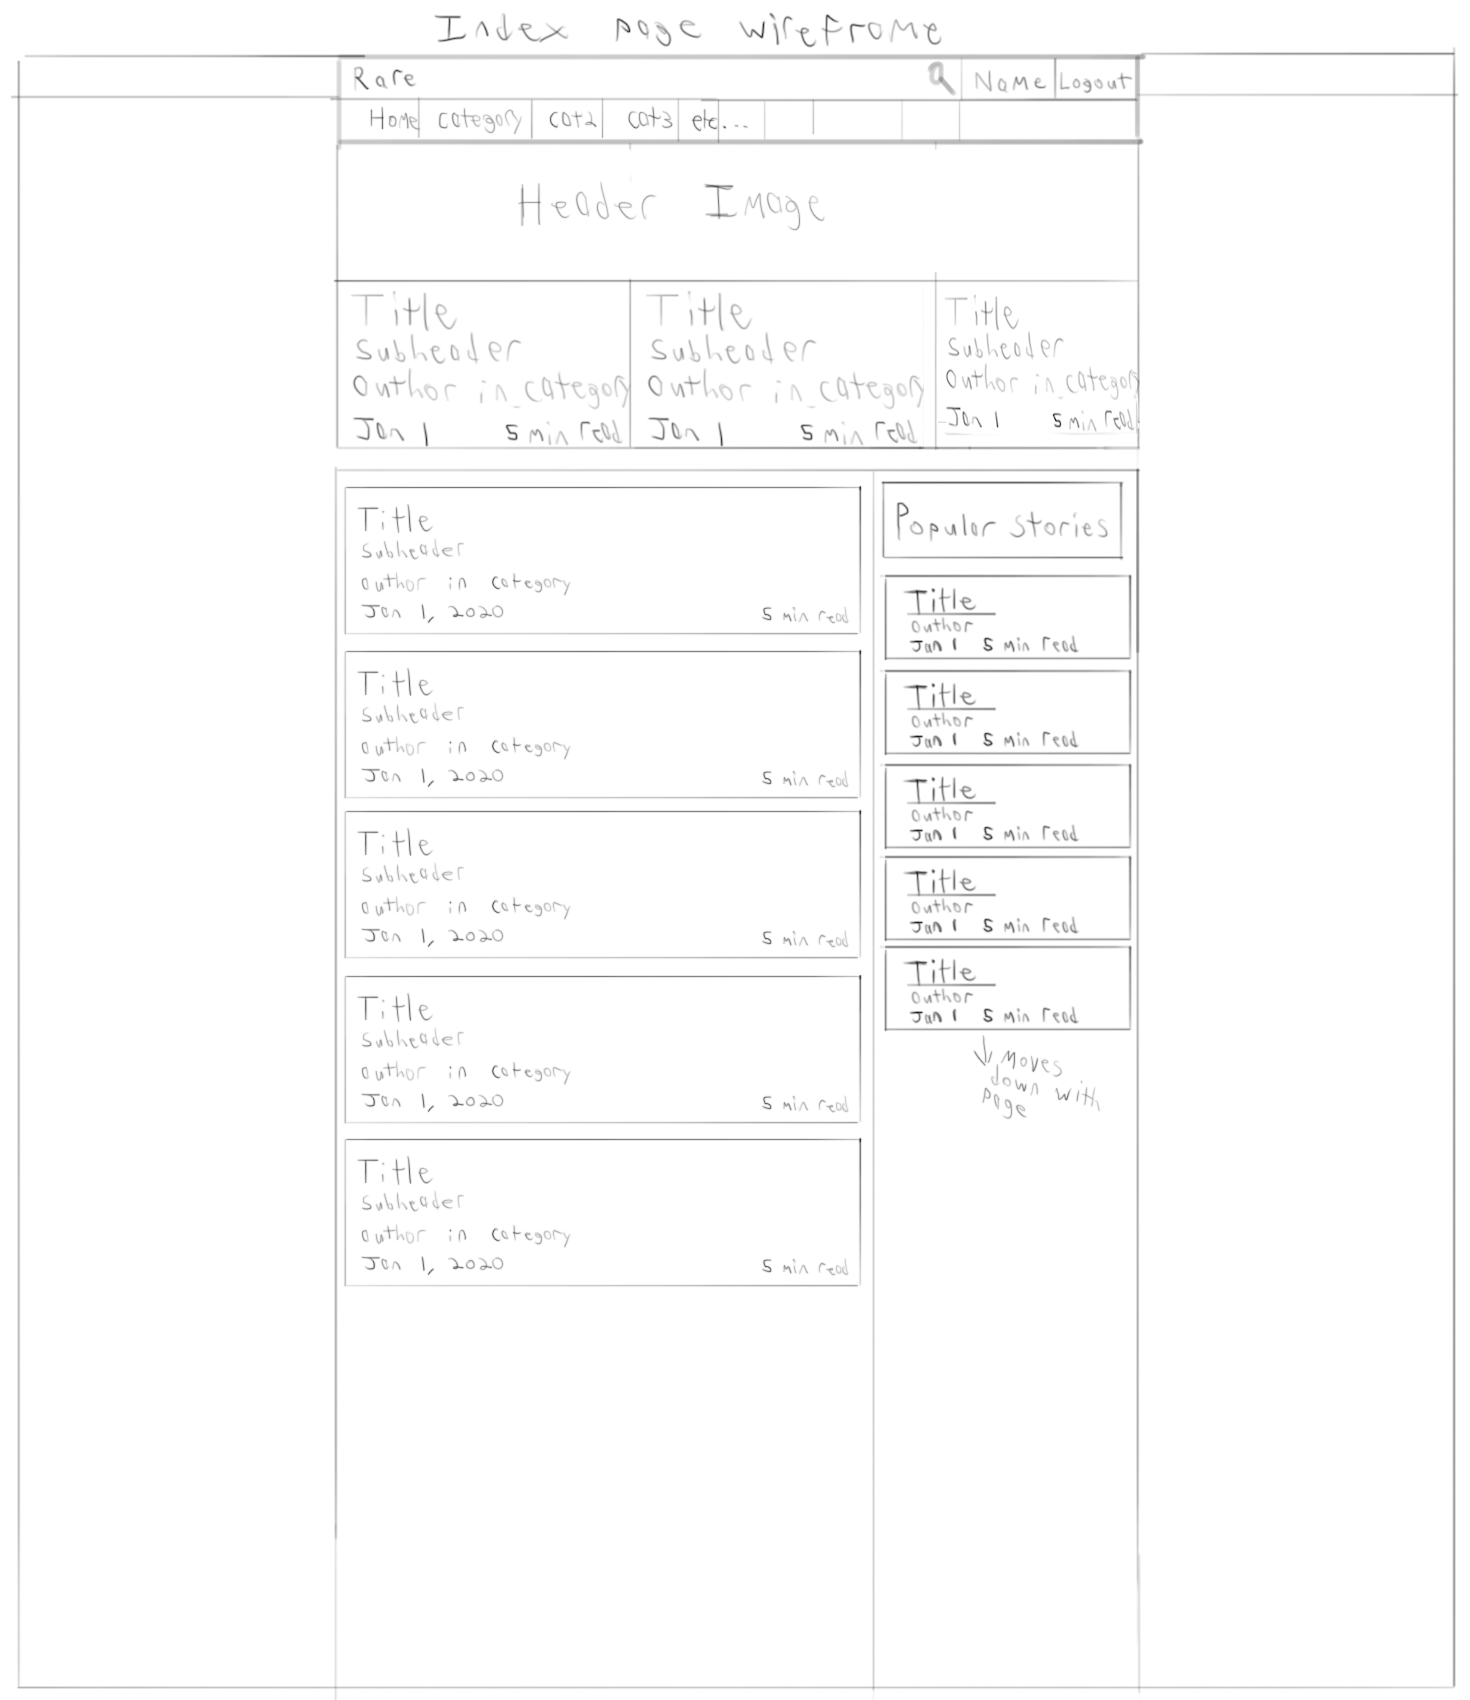 Index page wireframe
Rare
Name Logout
Home category cat2 cat3 etc...
Header Image
Title
Subheader
author in category
Jan 1 5 min read
Title
Subheader
author in category
Jan 1 5 min read
Title
Subheader
author in category
Jan 1 5 min read
Title
Subheader
author in category
Jan 1, 2020 5 min read
Title
Subheader
author in category
Jan 1, 2020 5 min read
Title
Subheader
author in category
Jan 1, 2020 5 min read
Title
Subheader
author in category
Jan 1, 2020 5 min read
Title
Subheader
author in category
Jan 1, 2020 5 min read
Popular stories
Title
author
Jan 1 5 min read
Title
author
Jan 1 5 min read
Title
author
Jan 1 5 min read
Title
author
Jan 1 5 min read
Title
author
Jan 1 5 min read
moves
down with
page